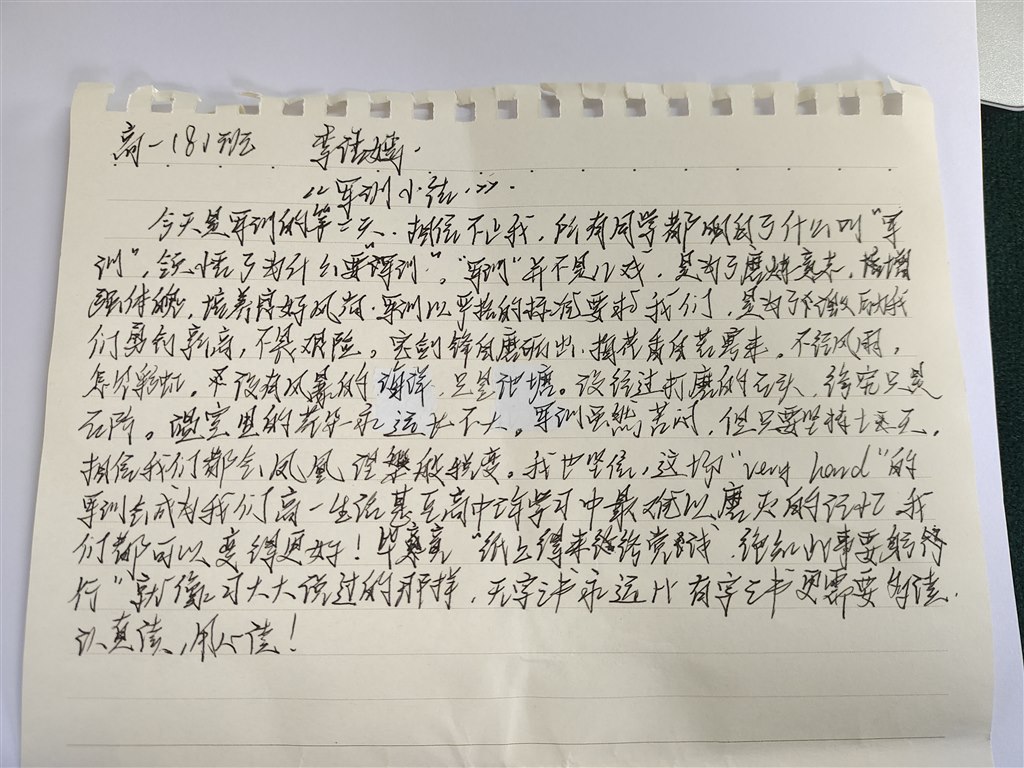 高一181班 李佳嬬.
《军训小结》.
今天是军训的第二天.相信不止我,所有同学都明白了什么叫“军
训”,领悟了为什么要“军训”。“军训”并不是儿戏,是为了磨炼意志,增
强体魄,培养良好风尚.军训以严格的标准要求我们,是为了激励我
们勇创新高,不畏艰险。宝剑锋自磨砺出.梅花香自苦寒来。不经风雨,
怎见彩虹。没有风暴的海洋,只是池塘。没经过打磨的石头,终究只是
石阶。温室里的花华永远长不大。军训虽然苦闷,但只要坚持七天,
相信我们都会凤凰涅槃般蜕变。我也坚信,这场“very hard”的
军训会成为我们高一生活甚至高中三年学习中最难以磨灭的记忆.我
们都可以变得更好!毕竟“纸上得来终觉浅,绝知此事要躬行
行”就像习大大说过的那样,无字之书永远比有字之书更需要多读.
认真读,用心读!